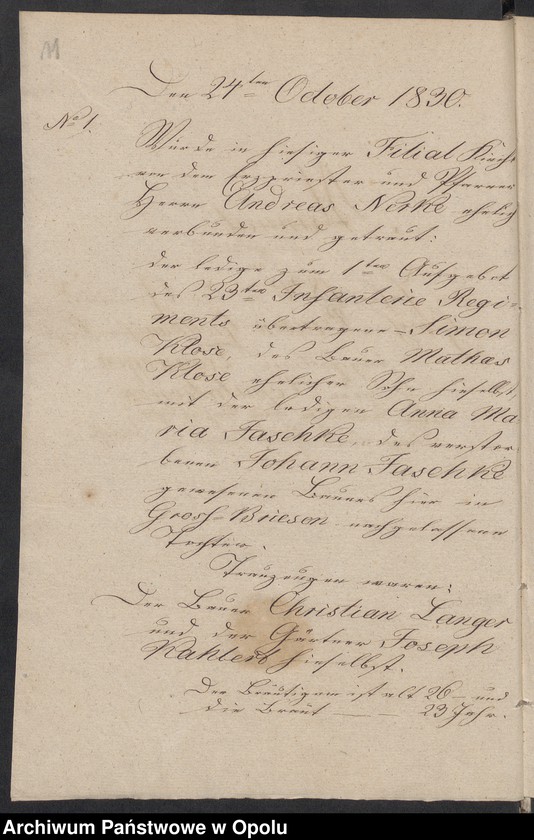 11
Den 24ten October 1830.
No 1.
Wurde in hiesiger Filial Kirche
von dem Erzpriester und Pfarrer
Herrn Andreas Nerke ehelich
verbunden und getraut:
der ledige zum 1ten Aufgebot
des 23ten Infanterie Regi-
ments übertragene Simon
Klose, des Bauer Mathas
Klose ehelicher Sohn hieselbst,
mit der ledigen Anna Ma-
ria Jaschke, des verstor-
benen Johann Jaschke
gewesenen Bauers hier in
Gross-Briesen nachgelassene
Tochter.
Trauzeugen waren:
Der Bauer Christian Langer
und der Gärtner Joseph
Kahlert hieselbst.
Der Bräutigam ist alt 26 – und
die Braut — 23 Jahr.
Archiwum Państwowe w Opolu